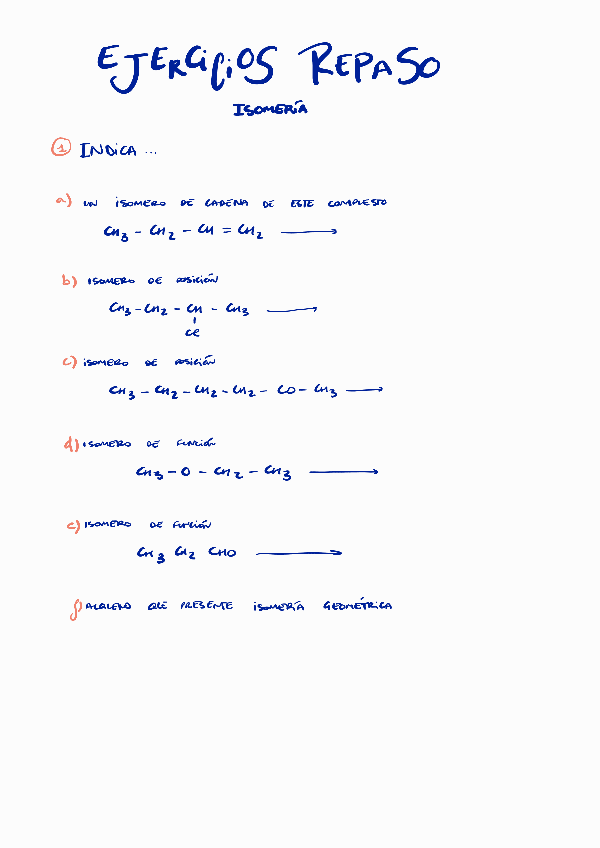 EJERCICIOS REPASO
ISOMERÍA
1 INDICA ...
a) UN ISOMERO DE CADENA DE ESTE COMPUESTO
CH3 - CH2 - CH = CH2 →
b) ISOMERO DE POSICIÓN
CH3 - CH2 - CH - CH3 →
Cl
c) ISOMERO DE POSICIÓN
CH3 - CH2 - CH2 - CH2 - CO - CH3 →
d) ISOMERO DE FUNCIÓN
CH3 - O - CH2 - CH3 →
e) ISOMERO DE FUNCIÓN
CH3 CH2 CHO →
f) ALQUENO QUE PRESENTE ISOMERÍA GEOMÉTRICA